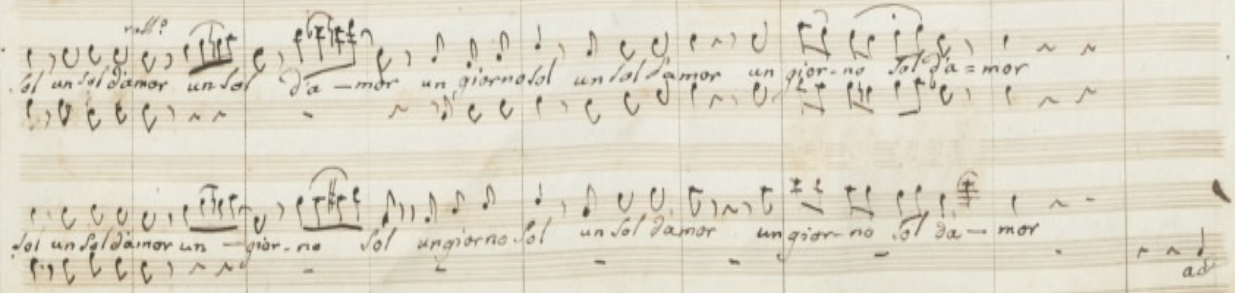 rall:
sol un sol d'amor un sol d'a - mor un giorno sol un sol d'amor un gior - no sol d'a = mor
sol un sol d'amor un - gior - no sol un giorno sol un sol d'amor un gior - no sol da - mor
ad